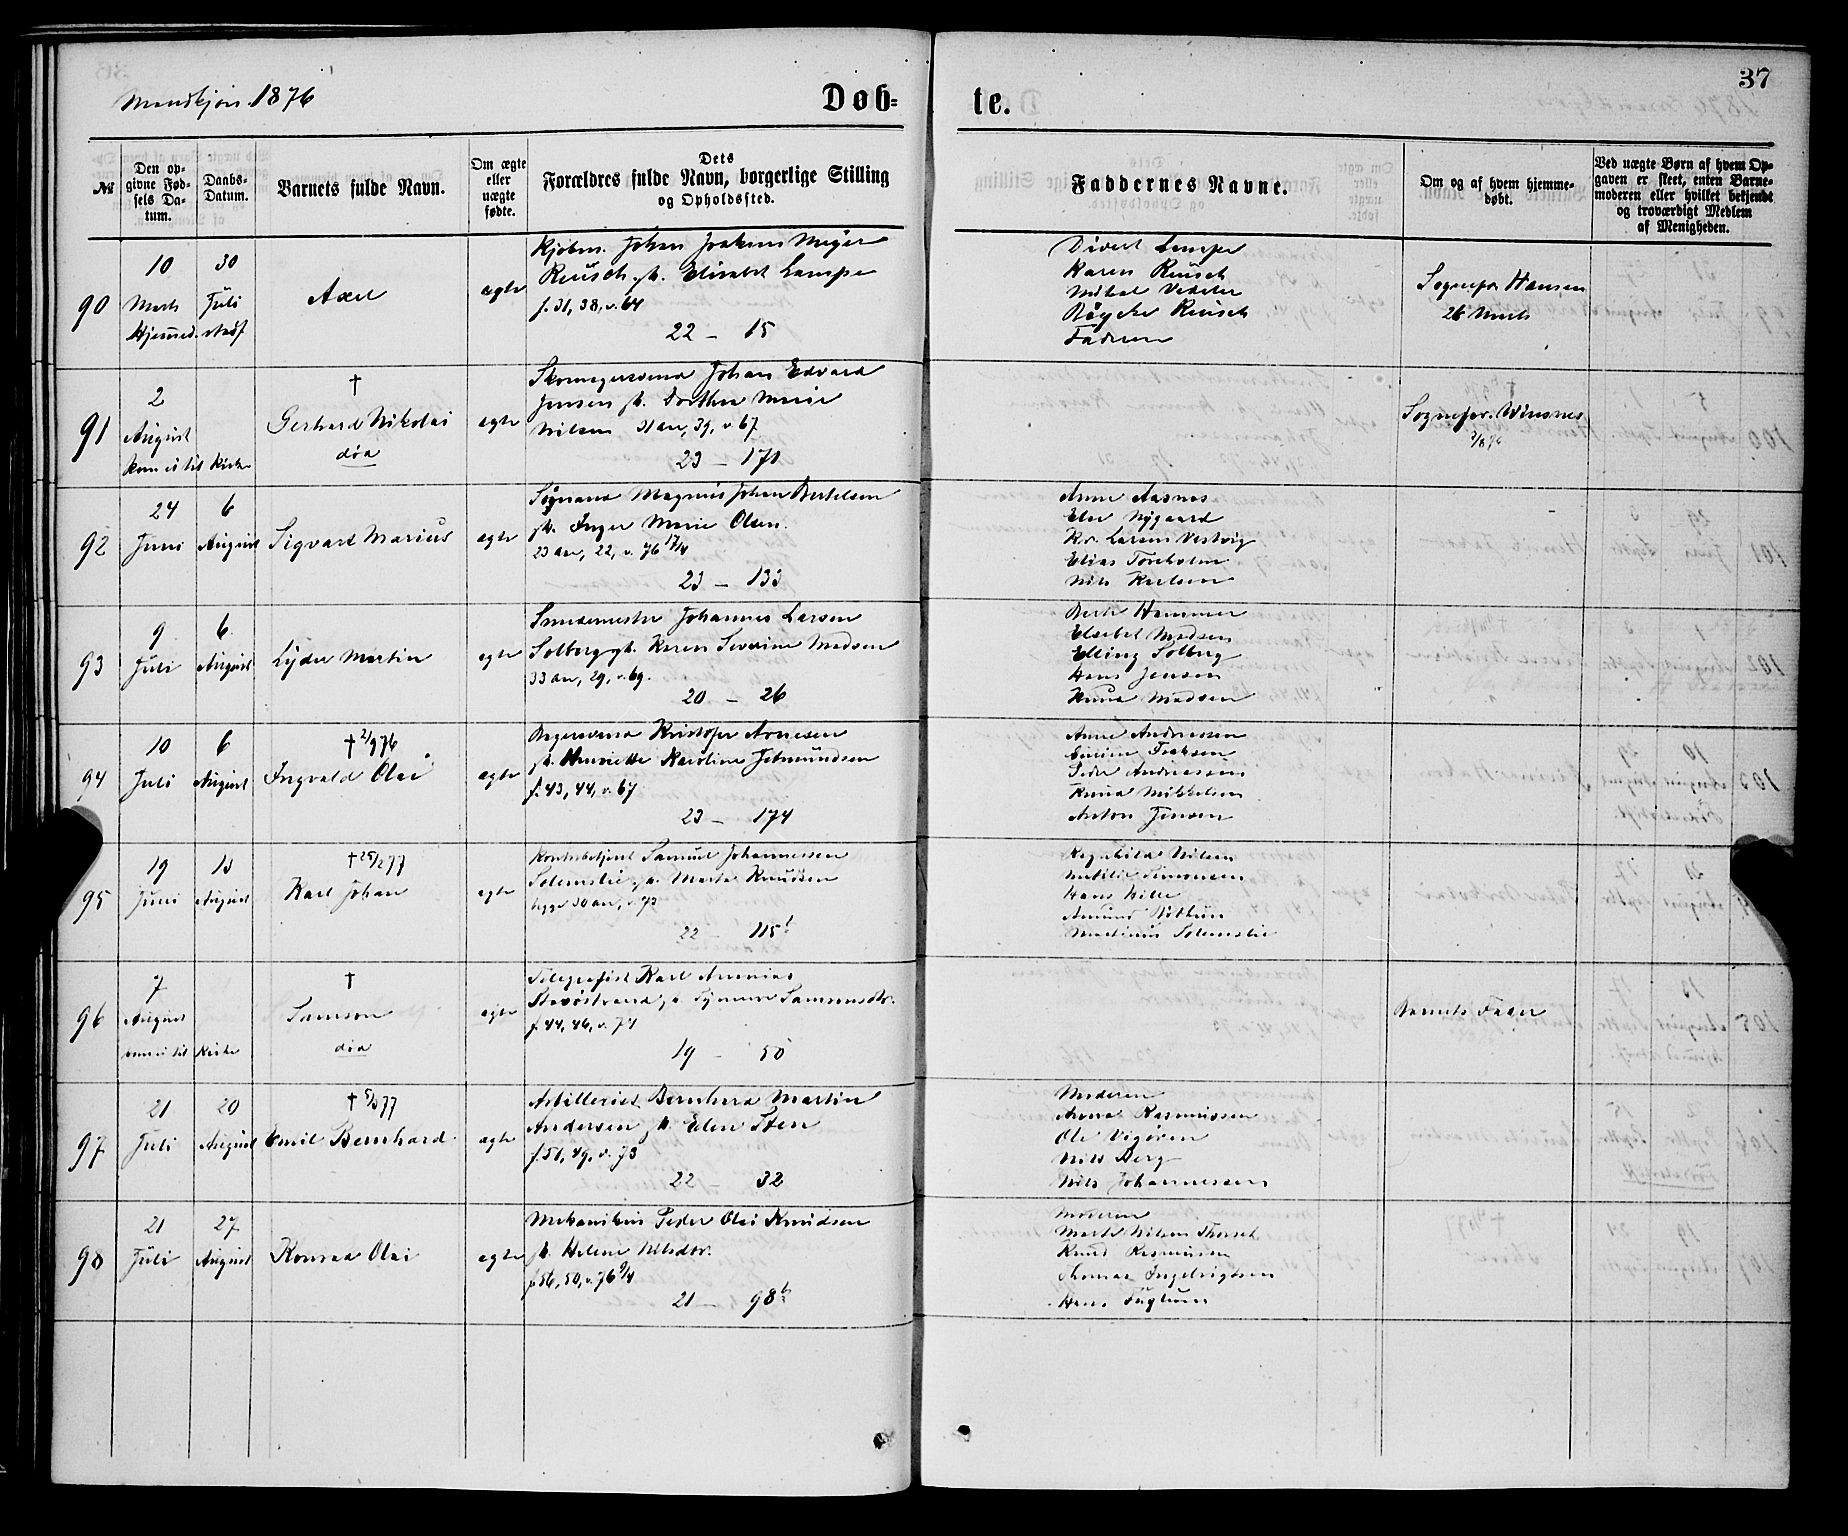 37
Mandkjøn. 1876
Døb=
te.
№
Den op-
givne Fød-
sels Da-
tum.
Daabs-
Datum.
Barnets fulde Navn.
Om ægte
eller
uægte
fødte.
Dets
Forældres fulde Navn, borgerlige Stilling
og Opholdssted.
Faddernes Navne.
Om og af hvem hjemme-
døbt.
Ved uægte Børn af hvem Op-
gaven er skeet, enten Barne-
moderen eller hvilket bekjendt
og troværdigt Medlem
af Menigheden.
90
10
Marts
30
Juli
Hjemmed. stadf
Axel
ægte
Kjøbm. Johan Joakim Meyer
Reusch og h. Elisabet Lampe
f. 31, 38, v. 64
22 — 15
Divert Lampe
Karen Reusch
Mikal Vedeler
Røycke Reusch
Faderen
Sognepr. Hansen
26 Marts
91
2
August
kom ei til Kirke
†
Gerhard Nikolai
død
ægte
Skomagersvend Johan Edvard
Jensen og h. Dorthea Marie
Nilsen 31 aar, 39, v. 67
23 — 171
Sognepr. Winsnes
3/8 76
92
24
Juni
6
August
Sigvard Marius
ægte
Sømand Magnus Johan Bertelsen
og h. Inger Marie Olsen.
23 aar, 22, v. 76 17/4
23 — 133
Anne Aasnes
Else Nygaard
Kr. Larsen Vestvig
Elias Torsholm
Nils Karlsen
93
9
Juli
6
August
Lyder Martin
ægte
Smedemester Johannes Larsen
Solberg og h. Karen Severine Madsen
33 aar, 29, v. 69.
20 — 26
Berte Hammer
Elsebet Madsen
Elling Solberg
Hans Jensen
Knud Madsen
94
10
Juli
6
August
† 2/9 76
Ingvald Olai
ægte
Bagersvend Kristofer Arnesen
og h. Henriette Karoline Jetmundsen
f. 43, 44, v. 67
23 — 174
Anne Andreassen
Peder Andreassen
Knud Mikkelsen
Anton Jensen
95
19
Juni
13
August
† 25/2 77
Karl Johan
ægte
Kontorbetjent Samuel Johannessen
Solemslie og h. Marta Knudsen
begge 30 aar, v. 73
22 — 115 b
Ragnhild Nilsen
Matilde Simonsen
Hans Hille
Amund Röthun
Martinus Solemslie
96
7
August
kom ei til Kirke
†
Samson
død
ægte
Telegrafist Karl Ananias
f. 44, 46, v. 74
19 — 50
Barnets Fader
97
21
Juli
20
August
† 5/3 77
Emil Bernhard
ægte
Artillerist Bernhard Martin
Andersen og h. Elen Sten
f. 51, 49, v. 73
22 — 32
Moderen
Anna Rasmussen
Ole Vigøren
Nils Berg
Nils Johannessen
98
21
Juli
27
August
Konrad Olai
ægte
Mekanikus Peder Olai Knudsen
og h. Helene Nilsdtr.
f. 56, 50, v. 76 9/4
21 — 98 b
Moderen
Marte Nilsen
Knud Rasmussen
Thomas Ingebrigtsen
Hans Fuglum